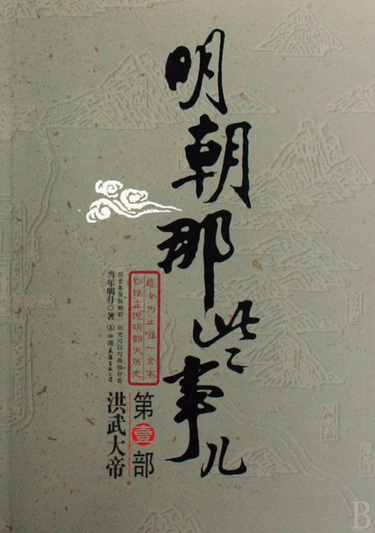 明朝那些事儿
迄今为止唯一全本
白话正说明朝大历史
第壹部
洪武大帝
历史本身很精彩，历史可以写得很好看
当年明月◎著
中国友谊出版公司
B